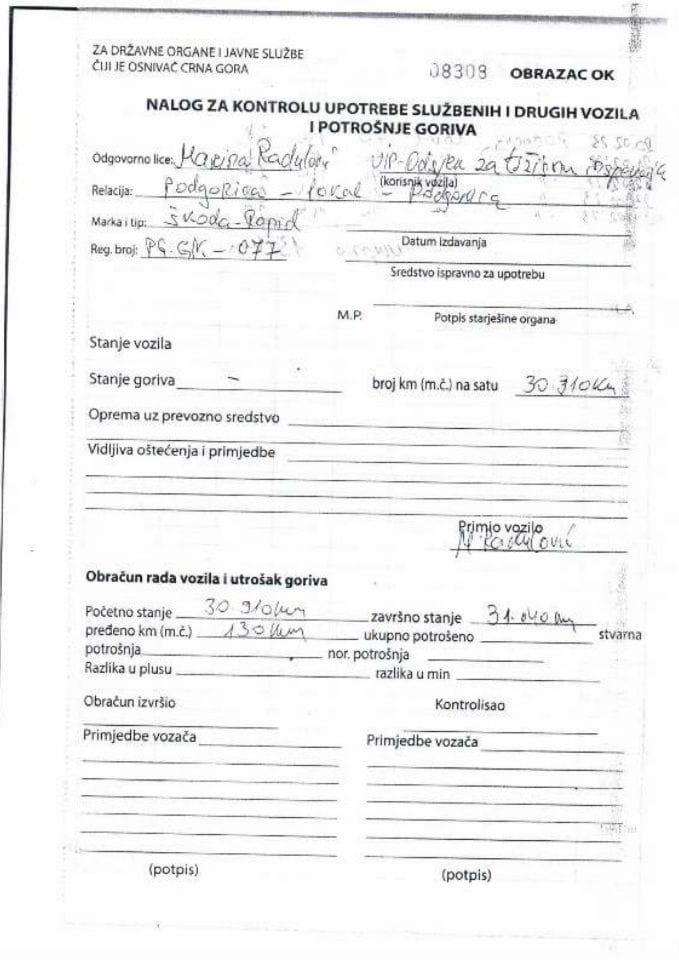 ZA DRŽAVNE ORGANE I JAVNE SLUŽBE
ČIJI JE OSNIVAČ CRNA GORA
08308 OBRAZAC OK
NALOG ZA KONTROLU UPOTREBE SLUŽBENIH I DRUGIH VOZILA
I POTROŠNJE GORIVA
Odgovorno lice: Marina Radulović UIP-Odsjek za tržišnu
(korisnik vozila)
Relacija: Podgorica - lokal - Podgorica
Marka i tip: Škoda-Rapid
Datum izdavanja
Reg. broj: PG-GN-077
Sredstvo ispravno za upotrebu
M.P. Potpis starješine organa
Stanje vozila
Stanje goriva - broj km (m.č.) na satu 30.910km
Oprema uz prevozno sredstvo
Vidljiva oštećenja i primjedbe
Primio vozilo
M Radulović
Obračun rada vozila i utrošak goriva
Početno stanje 30.910km završno stanje 31.040km
pređeno km (m.č.) 130km ukupno potrošeno stvarna
potrošnja nor. potrošnja
Razlika u plusu razlika u min
Obračun izvršio Kontrolisao
Primjedbe vozača Primjedbe vozača
(potpis) (potpis)